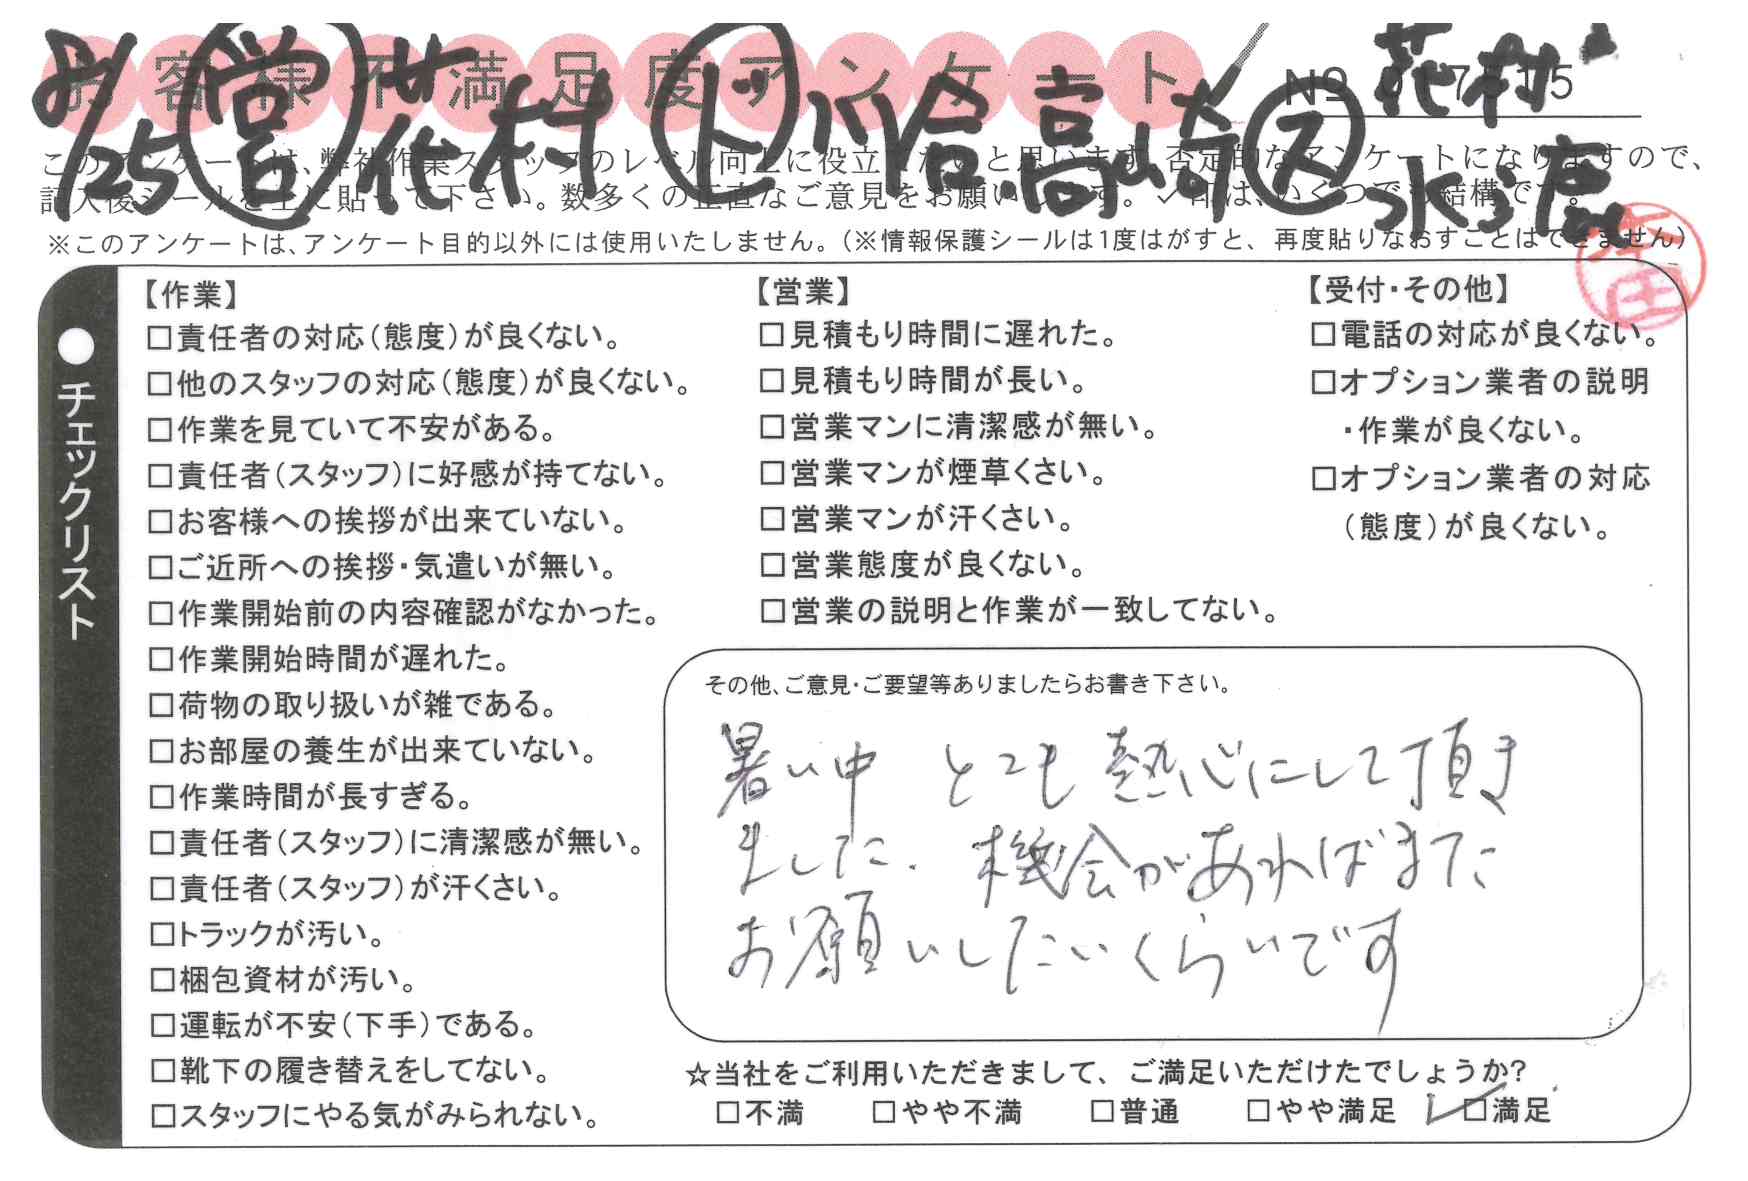 お客様不満足度アンケート
8/25 営 苙代村 ド 川合 高山崎 ス 花村 水漉
このアンケートは、弊社作業スタッフのレベル向上に役立てたいと思います。否定的なアンケートになりますので、
記入後シールを上に貼って下さい。数多くの正直なご意見をお願いします。✓印は、いくつでも結構です。
※このアンケートは、アンケート目的以外には使用いたしません。(※情報保護シールは1度はがすと、再度貼りなおすことはできません)
●チェックリスト
【作業】
□責任者の対応(態度)が良くない。
□他のスタッフの対応(態度)が良くない。
□作業を見ていて不安がある。
□責任者(スタッフ)に好感が持てない。
□お客様への挨拶が出来ていない。
□ご近所への挨拶・気遣いが無い。
□作業開始前の内容確認がなかった。
□作業開始時間が遅れた。
□荷物の取り扱いが雑である。
□お部屋の養生が出来ていない。
□作業時間が長すぎる。
□責任者(スタッフ)に清潔感が無い。
□責任者(スタッフ)が汗くさい。
□トラックが汚い。
□梱包資材が汚い。
□運転が不安(下手)である。
□靴下の履き替えをしてない。
□スタッフにやる気がみられない。
【営業】
□見積もり時間に遅れた。
□見積もり時間が長い。
□営業マンに清潔感が無い。
□営業マンが煙草くさい。
□営業マンが汗くさい。
□営業態度が良くない。
□営業の説明と作業が一致してない。
【受付・その他】
□電話の対応が良くない。
□オプション業者の説明
・作業が良くない。
□オプション業者の対応
(態度)が良くない。
その他、ご意見・ご要望等ありましたらお書き下さい。
暑い中 とても熱心にして頂き
ました。機会があればまた
お願いしたいくらいです
☆当社をご利用いただきまして、ご満足いただけたでしょうか?
□不満 □やや不満 □普通 □やや満足 ☑満足